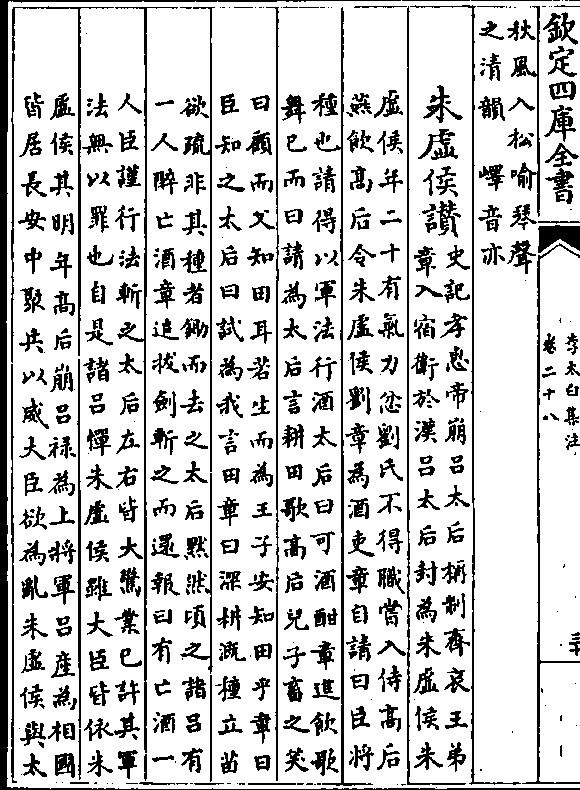 欽定四庫全書
李太白集注
卷二十八
秋風入松喻琴聲
之清韻 嶧音亦
朱虛侯讃
史記孝惠帝崩吕太后稱制齊哀王弟
章入宿衛於漢吕太后封為朱虛侯朱
虛侯年二十有氣力忿劉氏不得職嘗入侍高后
燕飲高后令朱虛侯劉章為酒吏章自請曰臣將
種也請得以軍法行酒太后曰可酒酣章進飲歌
舞已而曰請為太后言耕田歌高后兒子畜之笑
曰顧而父知田耳若生而為王子安知田乎章曰
臣知之太后曰試為我言田章曰深耕溉種立苗
欲疏非其種者鋤而去之太后黙然頃之諸吕有
一人醉亡酒章追拔劍斬之而還報曰有亡酒一
人臣謹行法斬之太后左右皆大驚業已許其軍
法無以罪也自是諸吕憚朱虛侯雖大臣皆依朱
虛侯其明年高后崩吕祿為上將軍吕産為相國
皆居長安中聚兵以威大臣欲為亂朱虛侯與太